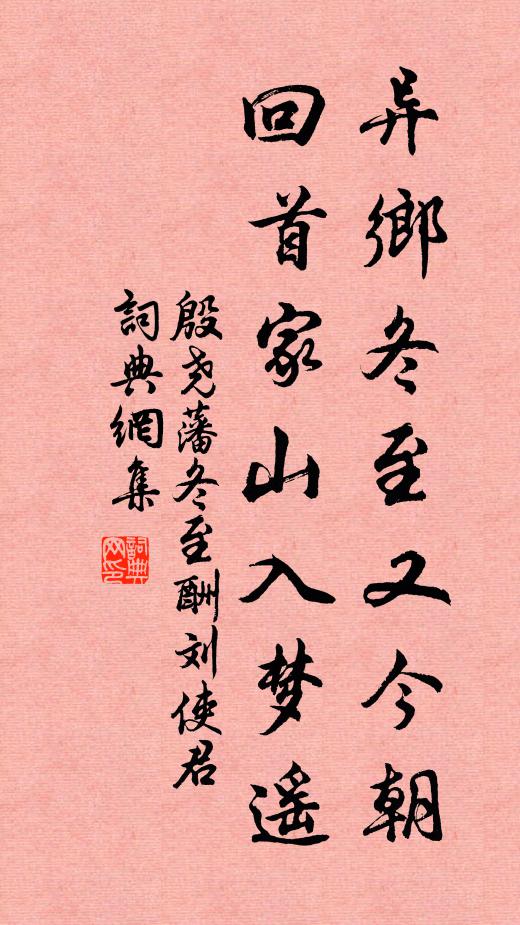 异鄉冬至又今朝
回首家山入梦遥
殷尧藩冬至酬刘使君
詞典網集
詞典网印